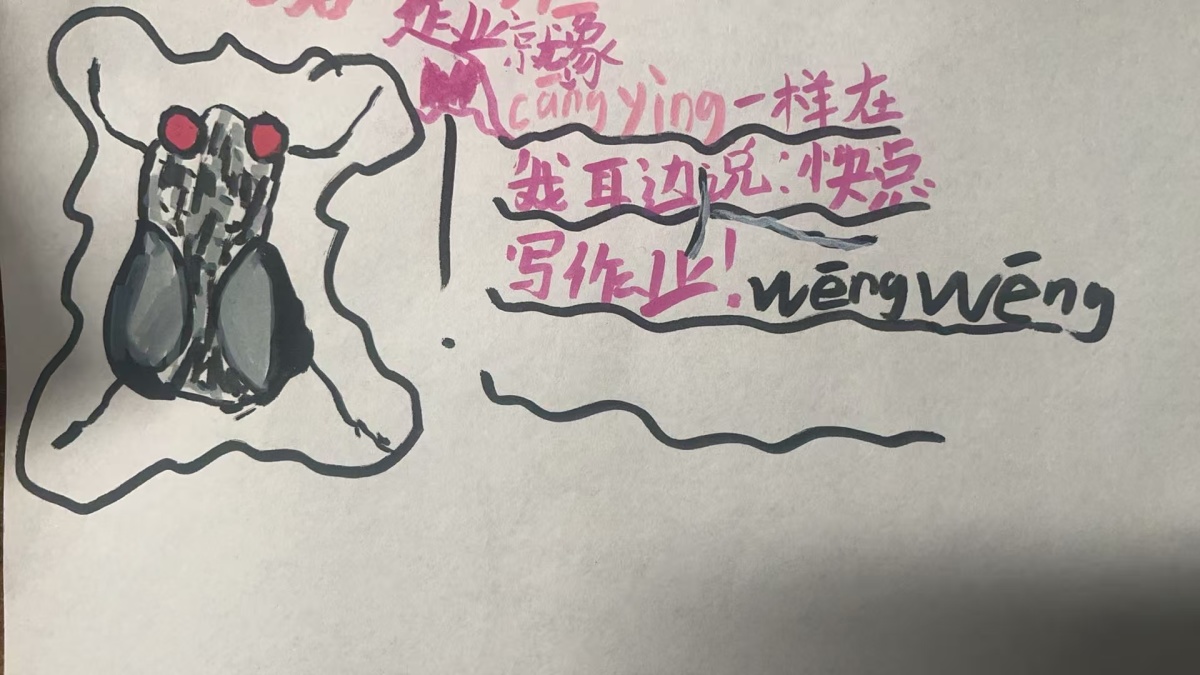 作业就像
cāng yìng一样在
我耳边说:快点
写作业!wēng wēng